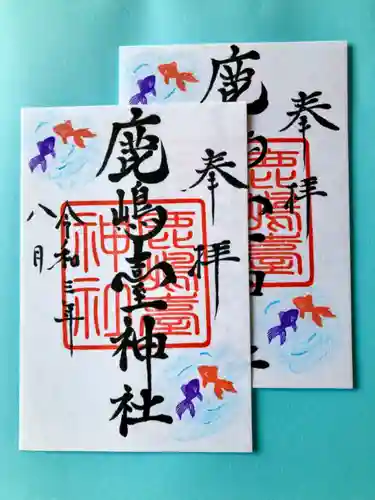 奉拝
鹿嶋臺神社
令和三年
八月
鹿嶋臺
神社
奉拝
鹿